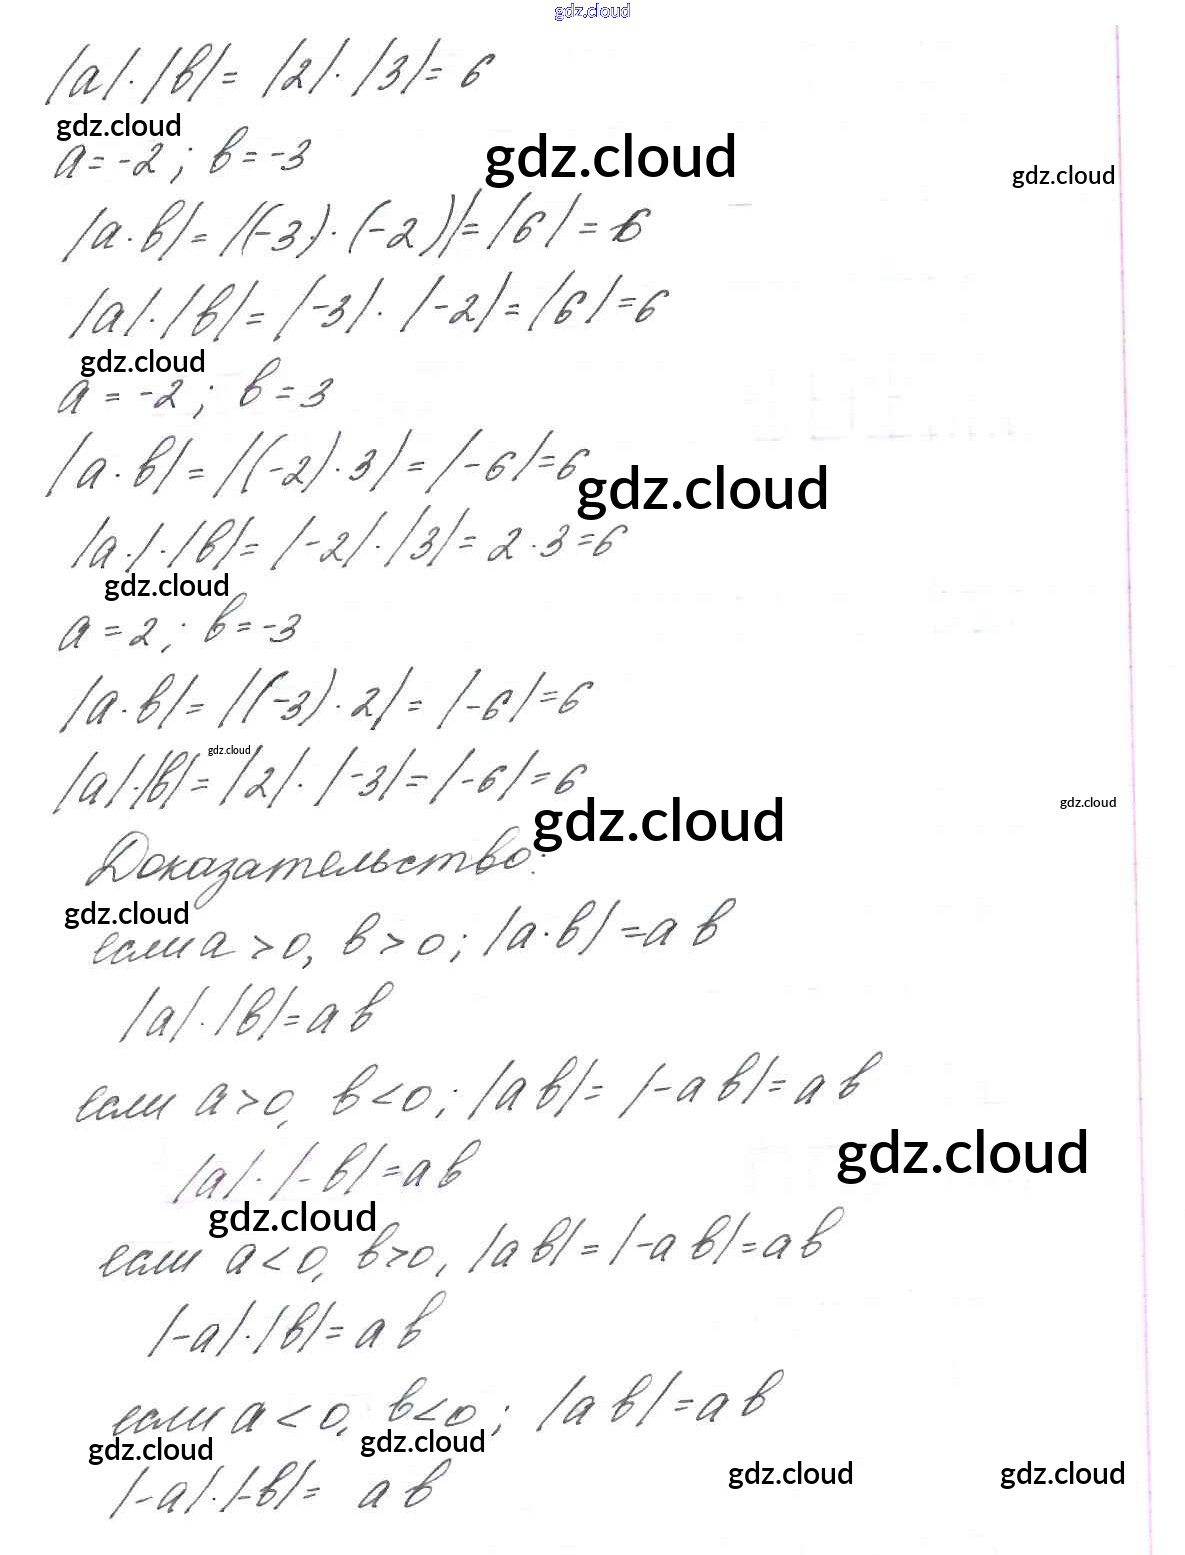 gdz.cloud
|a|·|b| = |2|·|3| = 6
gdz.cloud
a = -2; b = -3
gdz.cloud
gdz.cloud
|a·b| = |(-3)·(-2)| = |6| = 6
|a|·|b| = |-3|·|-2| = |6| = 6
gdz.cloud
a = -2; b = 3
|a·b| = |(-2)·3| = |-6| = 6
gdz.cloud
|a·|·|b| = |-2|·|3| = 2·3 = 6
gdz.cloud
a = 2; b = -3
|a·b| = |(-3)·2| = |-6| = 6
gdz.cloud
|a|·|b| = |2|·|-3| = |-6| = 6
gdz.cloud
gdz.cloud
Доказательство:
gdz.cloud
если a > 0, b > 0; |a·b| = ab
|a|·|b| = ab
если a > 0, b < 0; |ab| = |-ab| = ab
gdz.cloud
|a|·|-b| = ab
gdz.cloud
если a < 0, b > 0, |ab| = |-ab| = ab
|-a|·|b| = ab
если a < 0, b < 0; |ab| = ab
gdz.cloud
gdz.cloud
gdz.cloud
gdz.cloud
|-a|·|-b| = ab